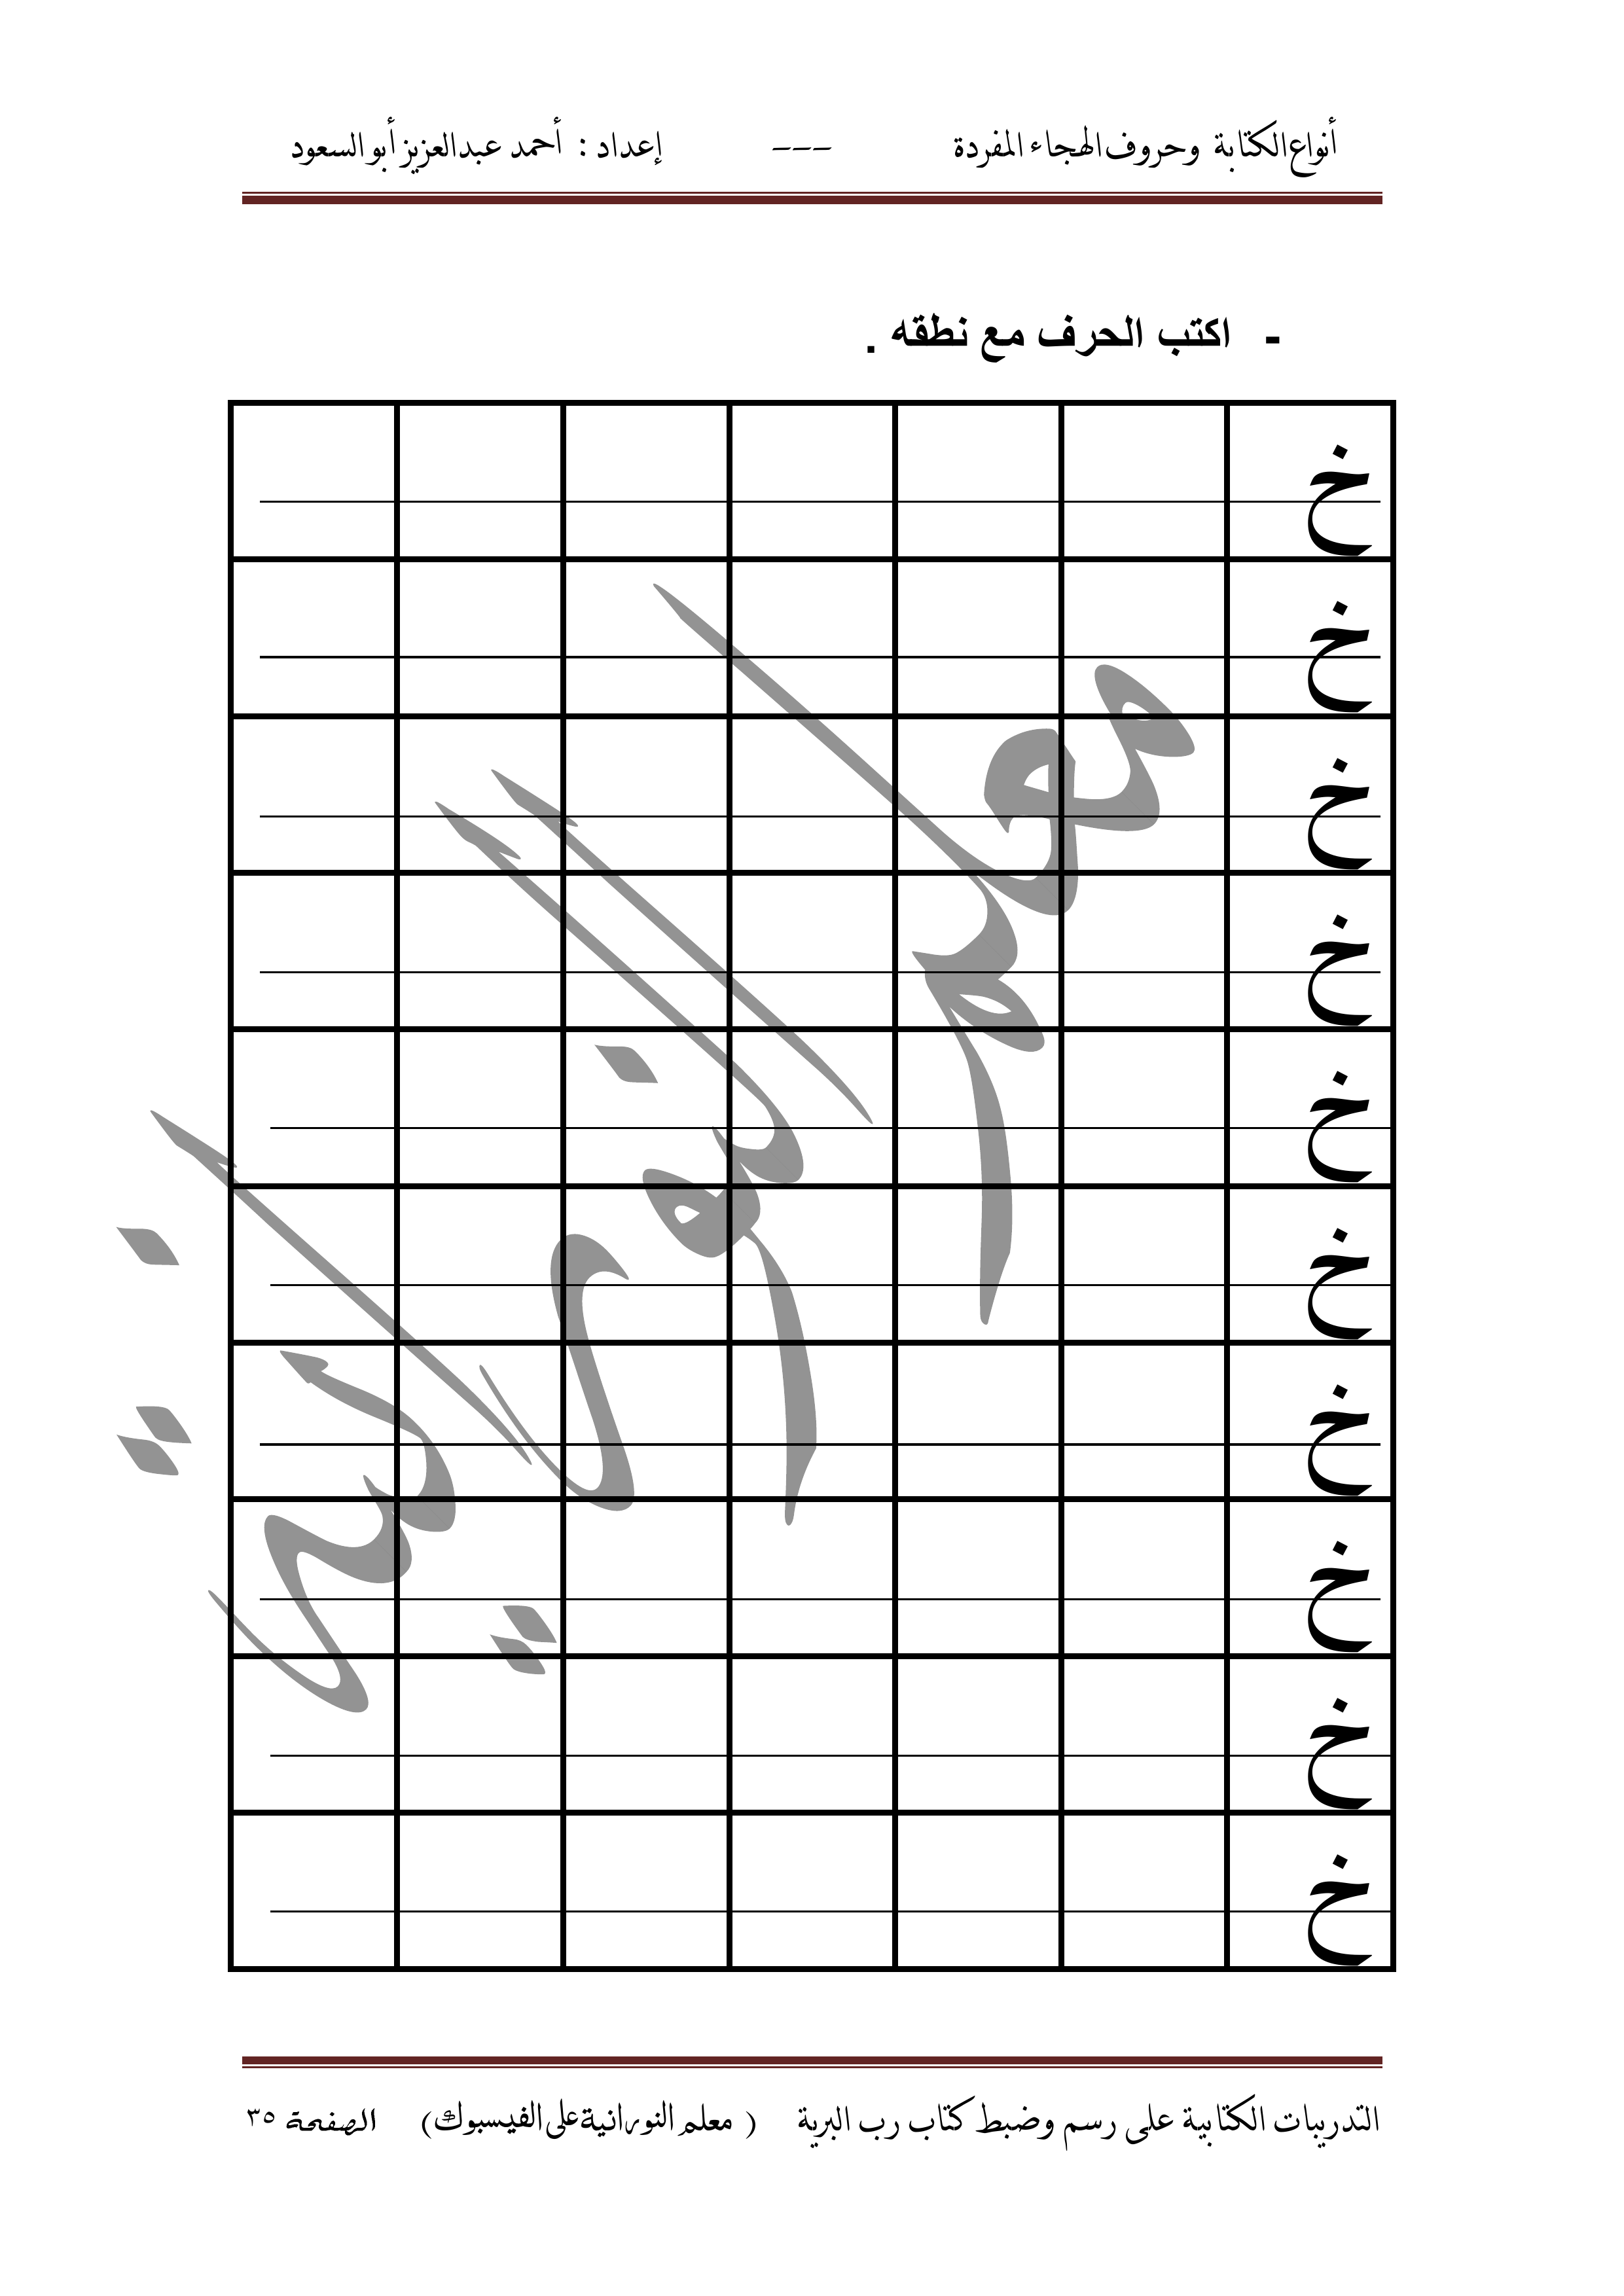 أنواع الكتابة وحروف الهجاء المفردة --- إعداد : أحمد عبدالعزيز أبو السعود
- اكتب الحرف مع نطقه .
خ
خ
خ
خ
خ
خ
خ
خ
خ
خ
معلم النورانية
التدريبات الكتابية على رسم وضبط كتاب رب البرية ( معلم النورانية على الفيسبوك ) الصفحة ٣٥